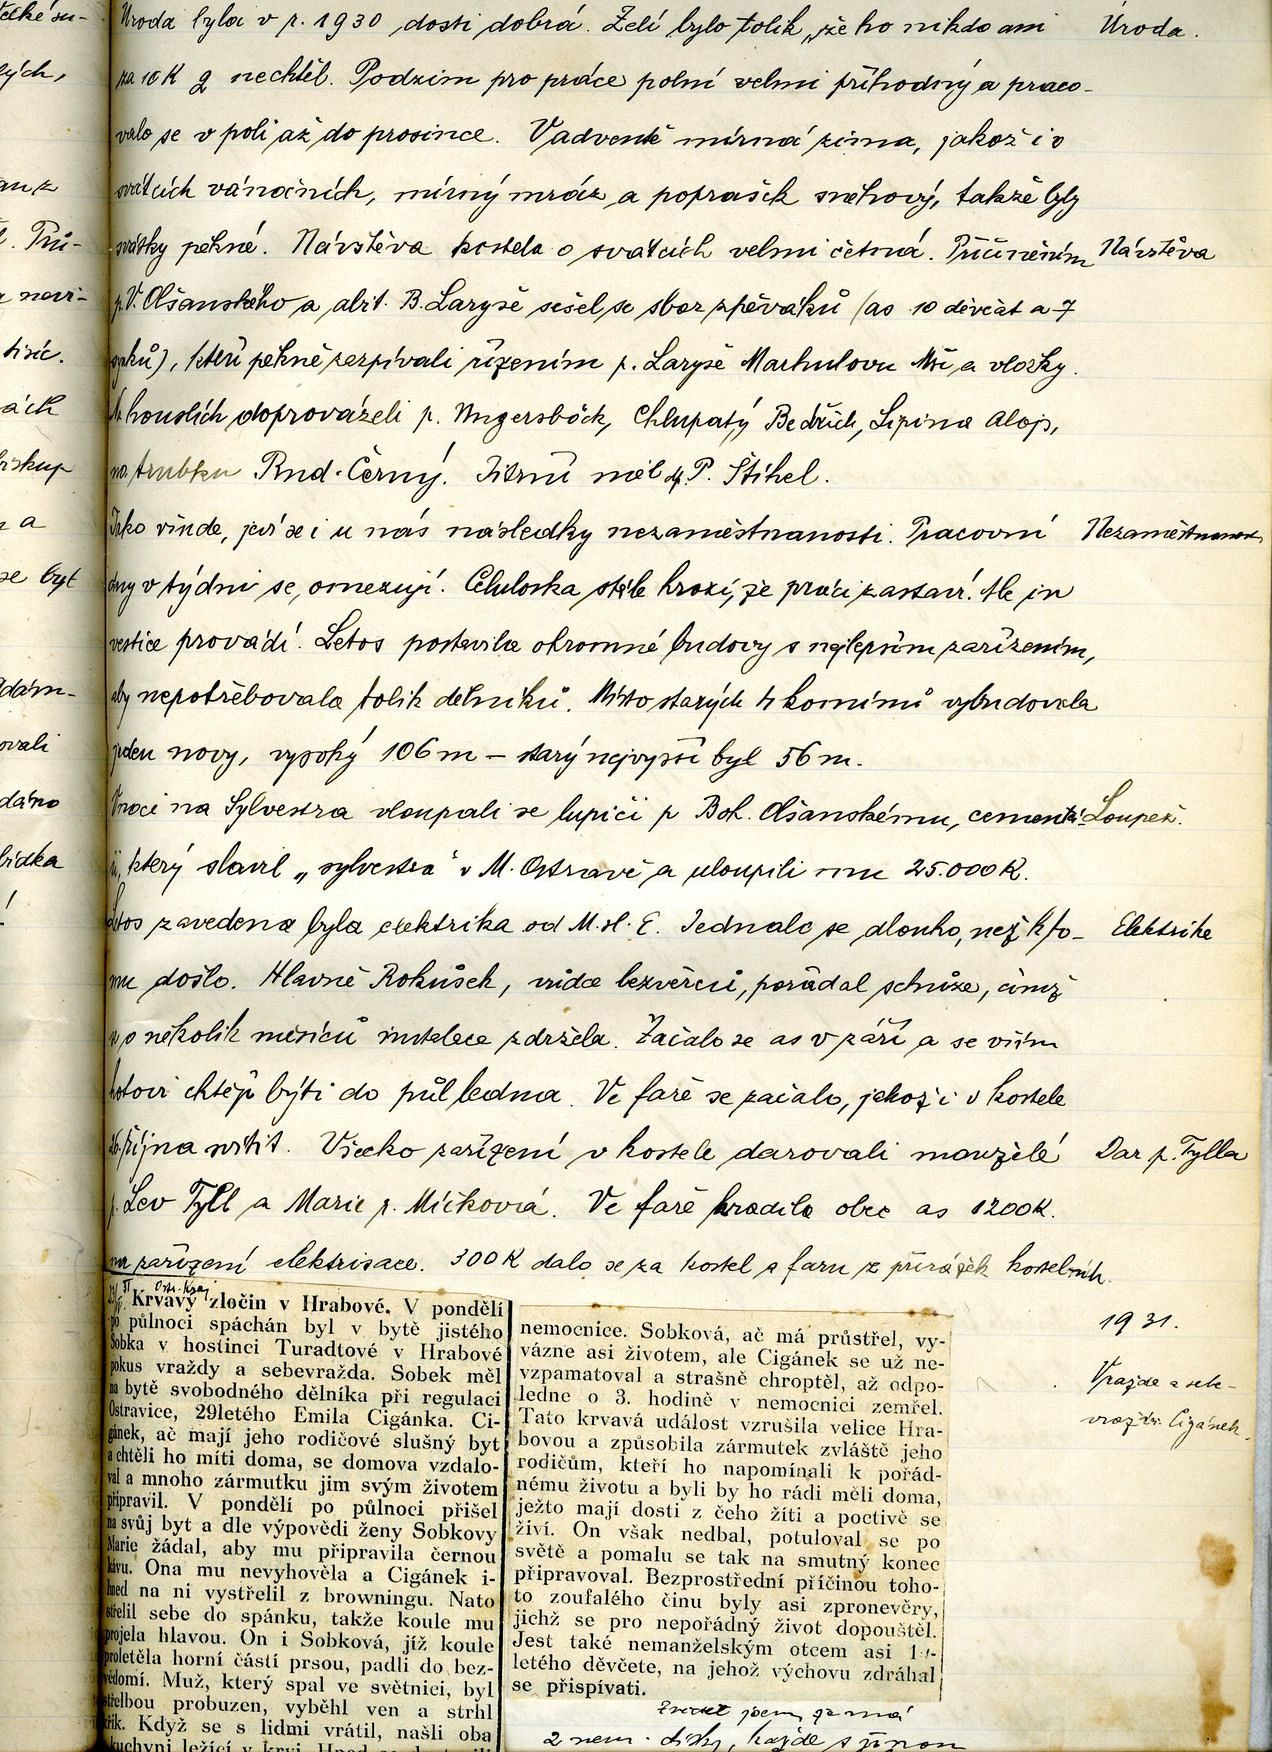 Úroda byla v r. 1930 dosti dobrá. Zelí bylo tolik, že ho nikdo ani
Úroda.
za 10 K q nechtěl. Podzim pro práce polní velmi příhodný a praco-
valo se v poli až do prosince. V adventě mírná zima, jakož i o
svátcích vánočních, mírný mráz a poprašek sněhový, takže byly
svátky pěkné. Návštěva kostela o svátcích velmi četná. Přičiněním
Návštěva
p. V. Olšanského a abit. B. Laryše sešel se sbor zpěváků (as 10 děvčat a 7
), kteří pěkně zazpívali řízením p. Laryše Mši a vložky.
Na houslích doprovázeli p. Ungersböck, Chlupatý Bedřich, Lipina Alojs,
na trubku Rud. Černý. Jitřní měl P. Štíhel.
Jako všude, jeví se i u nás následky nezaměstnanosti. Pracovní
Nezaměstnanost
dny v týdni se omezují. Celuloska stále hrozí, že práci zastaví. Ale in
vestice provádí. Letos postavila ohromné budovy s nejlepším zařízením,
aby nepotřebovala tolik dělníků. Místo starých 4 komínů vybudovala
jeden nový, vysoký 106 m – starý nejvyšší byl 56 m.
V noci na Sylvestra vloupali se lupiči p Boh. Olšanskému, cementá-
Loupež.
ři, který slavil „sylvestra" v M. Ostravě a uloupili mu 25.000 K.
Letos zavedena byla elektrika od M. sl. E. Jednalo se dlouho, než k to-
Elektrika
mu došlo. Hlavně Rokůsek, vůdce bezvěrců, pořádal schůze, čímž
se o několik měsíců instalace zdržela. Začalo se as v září a se vším
hotovi chtějí býti do půl ledna. Ve faře se začalo, jakož i v kostele
26. října svítit. Všecko zařízení v kostele darovali manželé
Dar p. Tylla
p. Lev Tyll a Marie r. Míčková. Ve faře hradila obec as 1200 K.
na zařízení elektrisace. 300 K dalo se za kostel a faru z přirážek kostelních.
Ostr. Kraj
Krvavý zločin v Hrabové. V pondělí
po půlnoci spáchán byl v bytě jistého
Sobka v hostinci Turadtové v Hrabové
pokus vraždy a sebevražda. Sobek měl
na bytě svobodného dělníka při regulaci
Ostravice, 29letého Emila Cigánka. Ci-
gánek, ač mají jeho rodičové slušný byt
a chtěli ho míti doma, se domova vzdalo-
val a mnoho zármutku jim svým životem
připravil. V pondělí po půlnoci přišel
na svůj byt a dle výpovědi ženy Sobkovy
Marie žádal, aby mu připravila černou
kávu. Ona mu nevyhověla a Cigánek i-
hned na ni vystřelil z browningu. Nato
střelil sebe do spánku, takže koule mu
projela hlavou. On i Sobková, jíž koule
proletěla horní částí prsou, padli do bez-
vědomí. Muž, který spal ve světnici, byl
střelbou probuzen, vyběhl ven a strhl
křik. Když se s lidmi vrátil, našli oba
kuchyni ležící v krvi.
nemocnice. Sobková, ač má průstřel, vy-
vázne asi životem, ale Cigánek se už ne-
vzpamatoval a strašně chroptěl, až odpo-
ledne o 3. hodině v nemocnici zemřel.
Tato krvavá událost vzrušila velice Hra-
bovou a způsobila zármutek zvláště jeho
rodičům, kteří ho napomínali k pořád-
nému životu a byli by ho rádi měli doma,
ježto mají dosti z čeho žíti a poctivě se
živí. On však nedbal, potuloval se po
světě a pomalu se tak na smutný konec
připravoval. Bezprostřední příčinou toho-
to zoufalého činu byly asi zpronevěry,
jichž se pro nepořádný život dopouštěl.
Jest také nemanželským otcem asi
letého děvčete, na jehož výchovu zdráhal
se přispívati.
1931.
Vražda a seb-
vražda. Cigánek.
jsem, že má
2 nem. dítky, každé s jinou